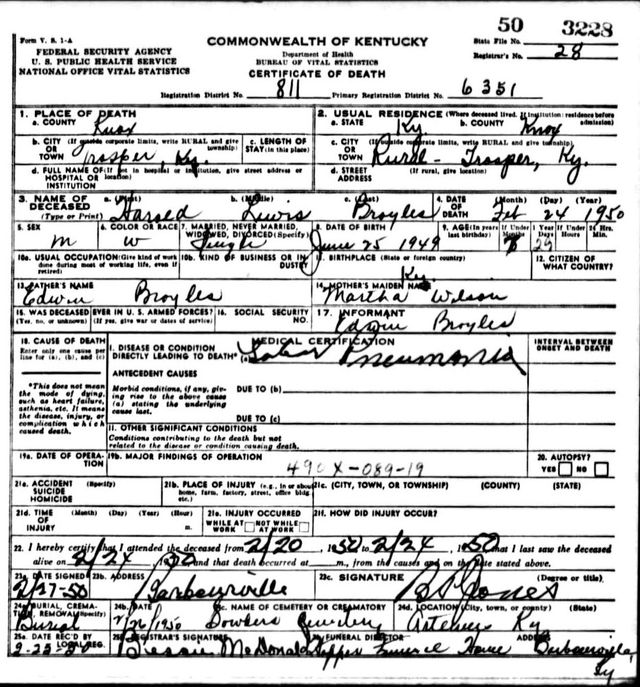 50 3228
Form V. S. 1-A
FEDERAL SECURITY AGENCY
U. S. PUBLIC HEALTH SERVICE
NATIONAL OFFICE VITAL STATISTICS
COMMONWEALTH OF KENTUCKY
Department of Health
BUREAU OF VITAL STATISTICS
CERTIFICATE OF DEATH
State File No.
Registrar's No. 28
Registration District No. 811 Primary Registration District No. 6351
1. PLACE OF DEATH
a. COUNTY Knox
2. USUAL RESIDENCE (Where deceased lived. If institution: residence before admission)
a. STATE Ky. b. COUNTY Knox
b. CITY (If outside corporate limits, write RURAL and give township) OR TOWN Trosper, Ky.
c. LENGTH OF STAY (in this place)
c. CITY (If outside corporate limits, write RURAL and give township) OR TOWN Rural - Trosper, Ky.
d. FULL NAME OF (If not in hospital or institution, give street address or location) HOSPITAL OR INSTITUTION
d. STREET ADDRESS (If rural, give location)
3. NAME OF DECEASED (Type or Print) a. (First) Harold b. (Middle) Lewis c. (Last) Broyles
4. DATE OF DEATH (Month) (Day) (Year) Feb 24 1950
5. SEX M
6. COLOR OR RACE W
7. MARRIED, NEVER MARRIED, WIDOWED, DIVORCED (Specify) Single
8. DATE OF BIRTH June 25 1949
9. AGE (In years last birthday) If Under 1 Year Months Days 29 If Under 24 Hrs. Hours Min.
10a. USUAL OCCUPATION (Give kind of work done during most of working life, even if retired)
10b. KIND OF BUSINESS OR INDUSTRY
11. BIRTHPLACE (State or foreign country) Ky.
12. CITIZEN OF WHAT COUNTRY?
13. FATHER'S NAME Edwin Broyles
14. MOTHER'S MAIDEN NAME Martha Wilson
15. WAS DECEASED EVER IN U. S. ARMED FORCES? (Yes, no, or unknown) (If yes, give war or dates of service)
16. SOCIAL SECURITY NO.
17. INFORMANT Edwin Broyles
18. CAUSE OF DEATH
Enter only one cause per line for (a), (b), and (c)
MEDICAL CERTIFICATION
INTERVAL BETWEEN ONSET AND DEATH
I. DISEASE OR CONDITION DIRECTLY LEADING TO DEATH* (a) Lobar Pneumonia
*This does not mean the mode of dying, such as heart failure, asthenia, etc. It means the disease, injury, or complication which caused death.
ANTECEDENT CAUSES
Morbid conditions, if any, giving rise to the above cause (a) stating the underlying cause last.
DUE TO (b)
DUE TO (c)
II. OTHER SIGNIFICANT CONDITIONS
Conditions contributing to the death but not related to the disease or condition causing death.
19a. DATE OF OPERATION
19b. MAJOR FINDINGS OF OPERATION
490X-089-19
20. AUTOPSY?
YES NO
21a. ACCIDENT SUICIDE HOMICIDE (Specify)
21b. PLACE OF INJURY (e.g., in or about home, farm, factory, street, office bldg. etc.)
21c. (CITY, TOWN, OR TOWNSHIP) (COUNTY) (STATE)
21d. TIME OF INJURY (Month) (Day) (Year) (Hour) m.
21e. INJURY OCCURRED
WHILE AT WORK NOT WHILE AT WORK
21f. HOW DID INJURY OCCUR?
22. I hereby certify that I attended the deceased from 2/20, 1950 to 2/24, 1950 that I last saw the deceased
alive on 2/24 1950 and that death occurred at m., from the causes and on the date stated above.
23a. DATE SIGNED 2/27-50
23b. ADDRESS Barbourville
23c. SIGNATURE Jones (Degree or title)
24a. BURIAL, CREMATION, REMOVAL (Specify) Burial
24b. DATE 2/26/1950
24c. NAME OF CEMETERY OR CREMATORY Cemetery
24d. LOCATION (City, town, or county) (State) Artemus Ky
25a. DATE REC'D BY LOCAL REG.
25b. REGISTRAR'S SIGNATURE Bessie McDonald
26. FUNERAL DIRECTOR ADDRESS Funeral Home Barbourville, Ky